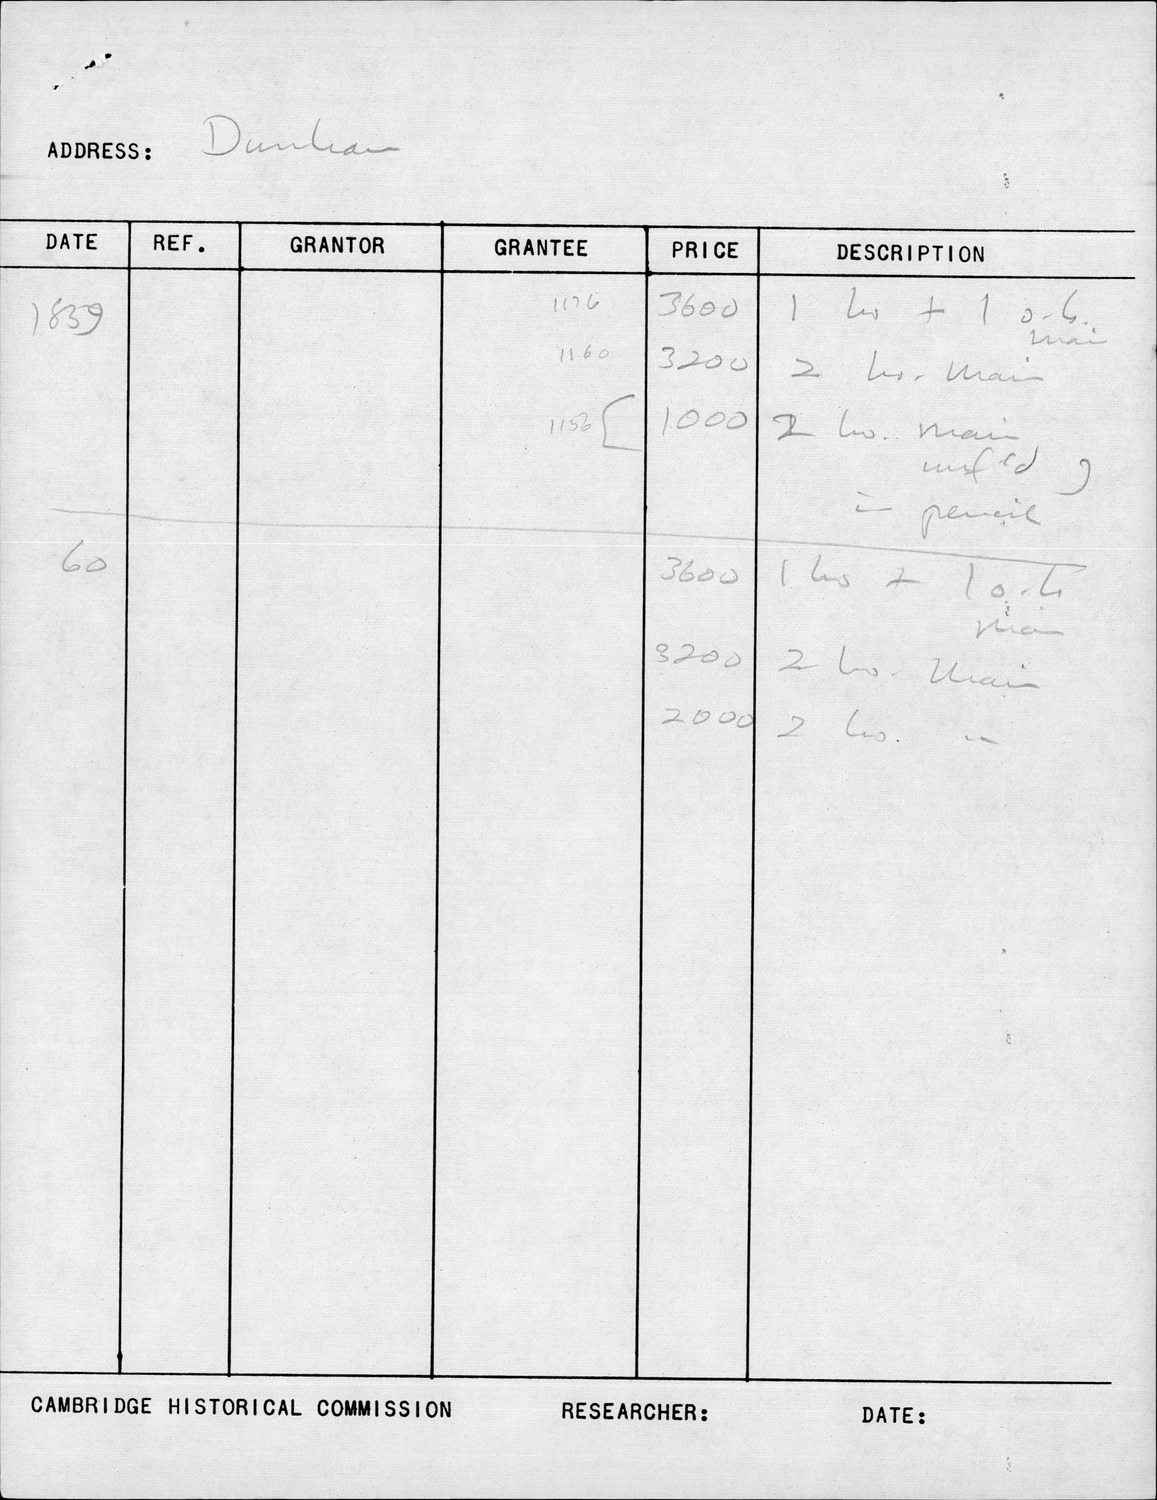 ADDRESS: Dunham
DATE REF. GRANTOR GRANTEE PRICE DESCRIPTION
1859 1176 3600 1 ho + 1 o.b.
Main
1160 3200 2 ho. Main
1156 [ 1000 2 ho. Main
unf'd
in pencil
60 3600 1 ho + 1 o.b.
Main
3200 2 ho. Main
2000 2 ho. "
CAMBRIDGE HISTORICAL COMMISSION RESEARCHER: DATE: